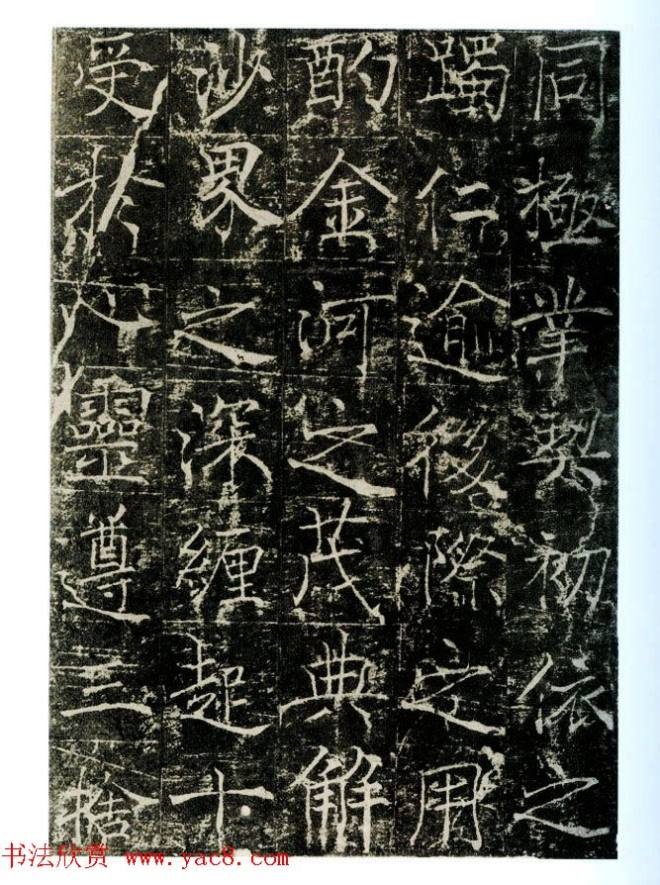 同極業契初依之
躅仁逾後際之用
酌金河之茂典解
沙界之深纏起十
受於八靈遵三捨
书法欣赏 www.yac8.com